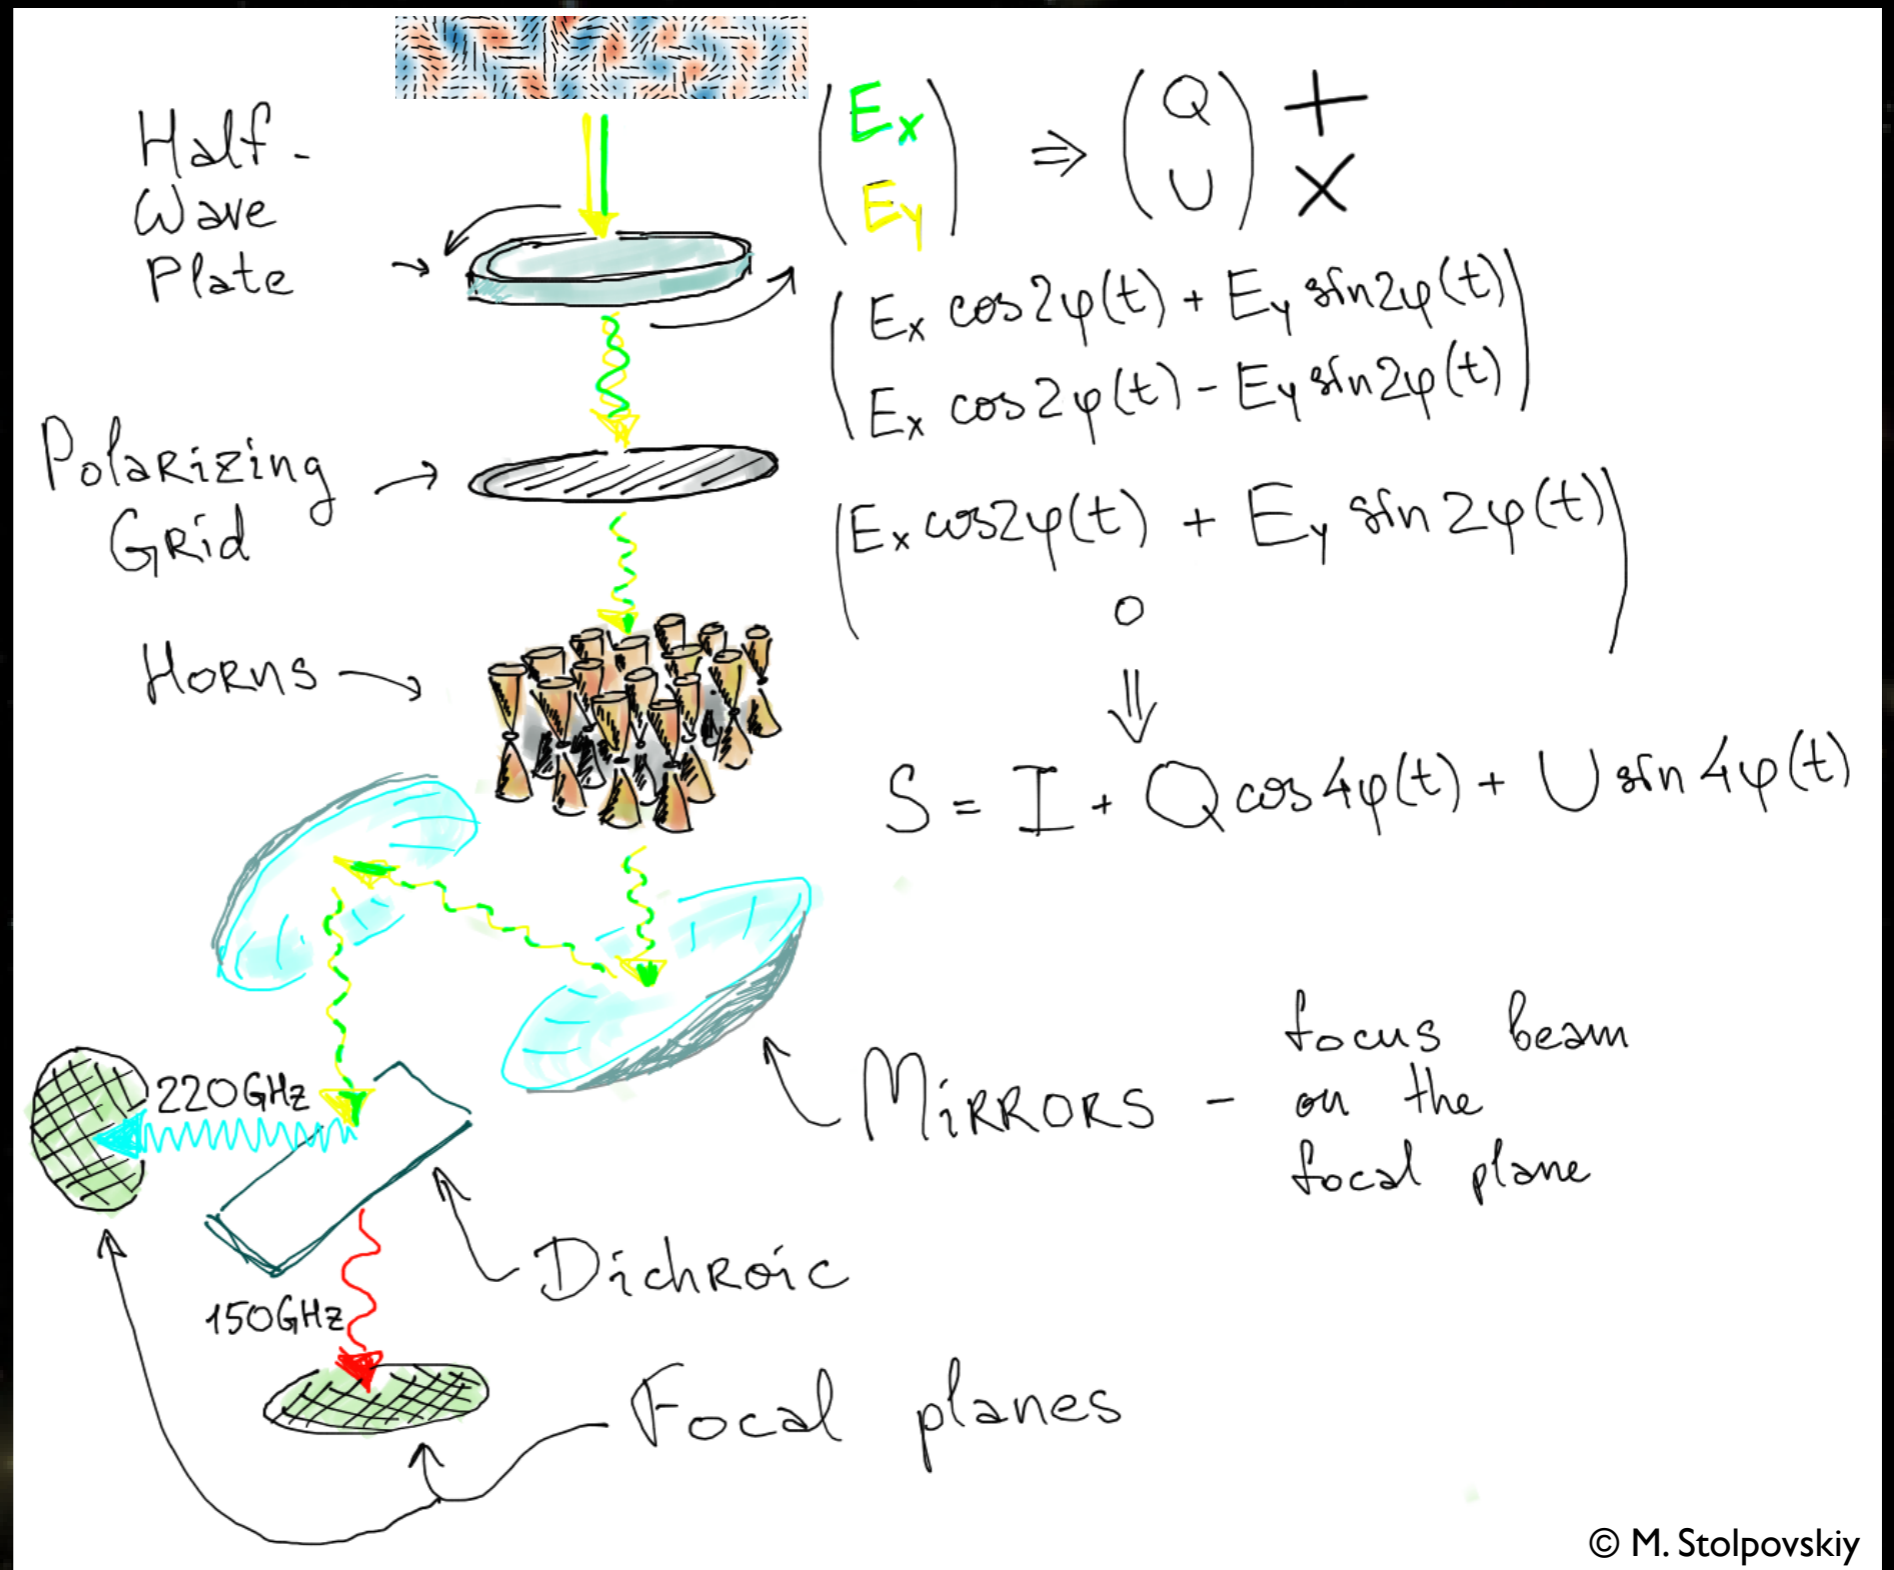 Half-
Wave
Plate
(Ex Ey) ⇒ (Q U) + ×
(Ex cos2φ(t) + Ey sin2φ(t)
Ex cos2φ(t) - Ey sin2φ(t))
Polarizing
Grid
(Ex cos2φ(t) + Ey sin2φ(t)
0)
⇓
Horns
S = I + Q cos4φ(t) + U sin4φ(t)
Mirrors - focus beam
on the
focal plane
220GHz
Dichroic
150GHz
Focal planes
© M. Stolpovskiy